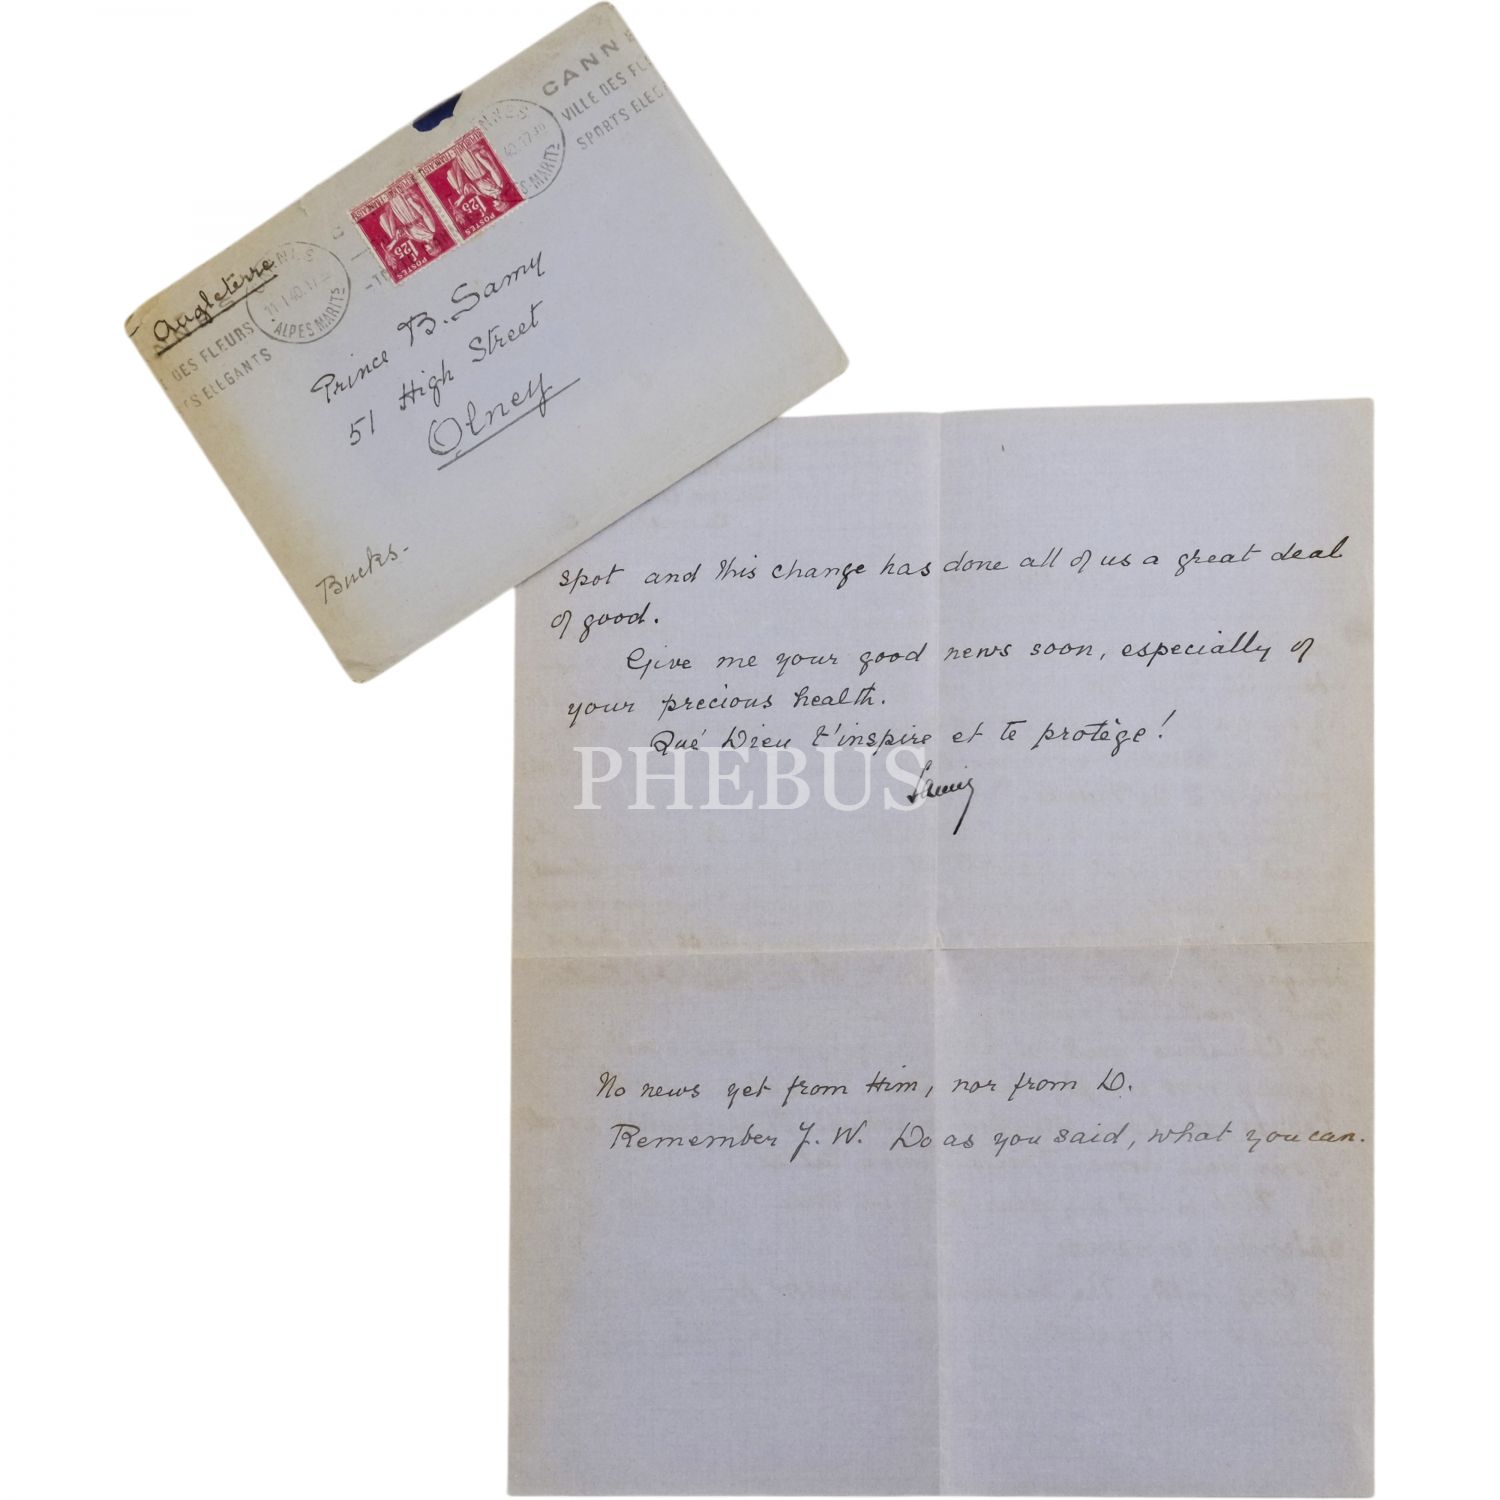 CANNE
VILLE DES FL
SPORTS ELEG
NNES
ALPES MARITS
11 1 40
DES FLEURS
TS ELEGANTS
POSTES
1F25
POSTES
1F25
Angleterre
Prince B. Samy
51 High Street
Olney
Bucks-
spot and this change has done all of us a great deal
of good.
Give me your good news soon, especially of
your precious health.
Qué Dieu t'inspire et te protège!
PHEBUS
No news yet from Him, nor from D.
Remember J. W. Do as you said, what you can.